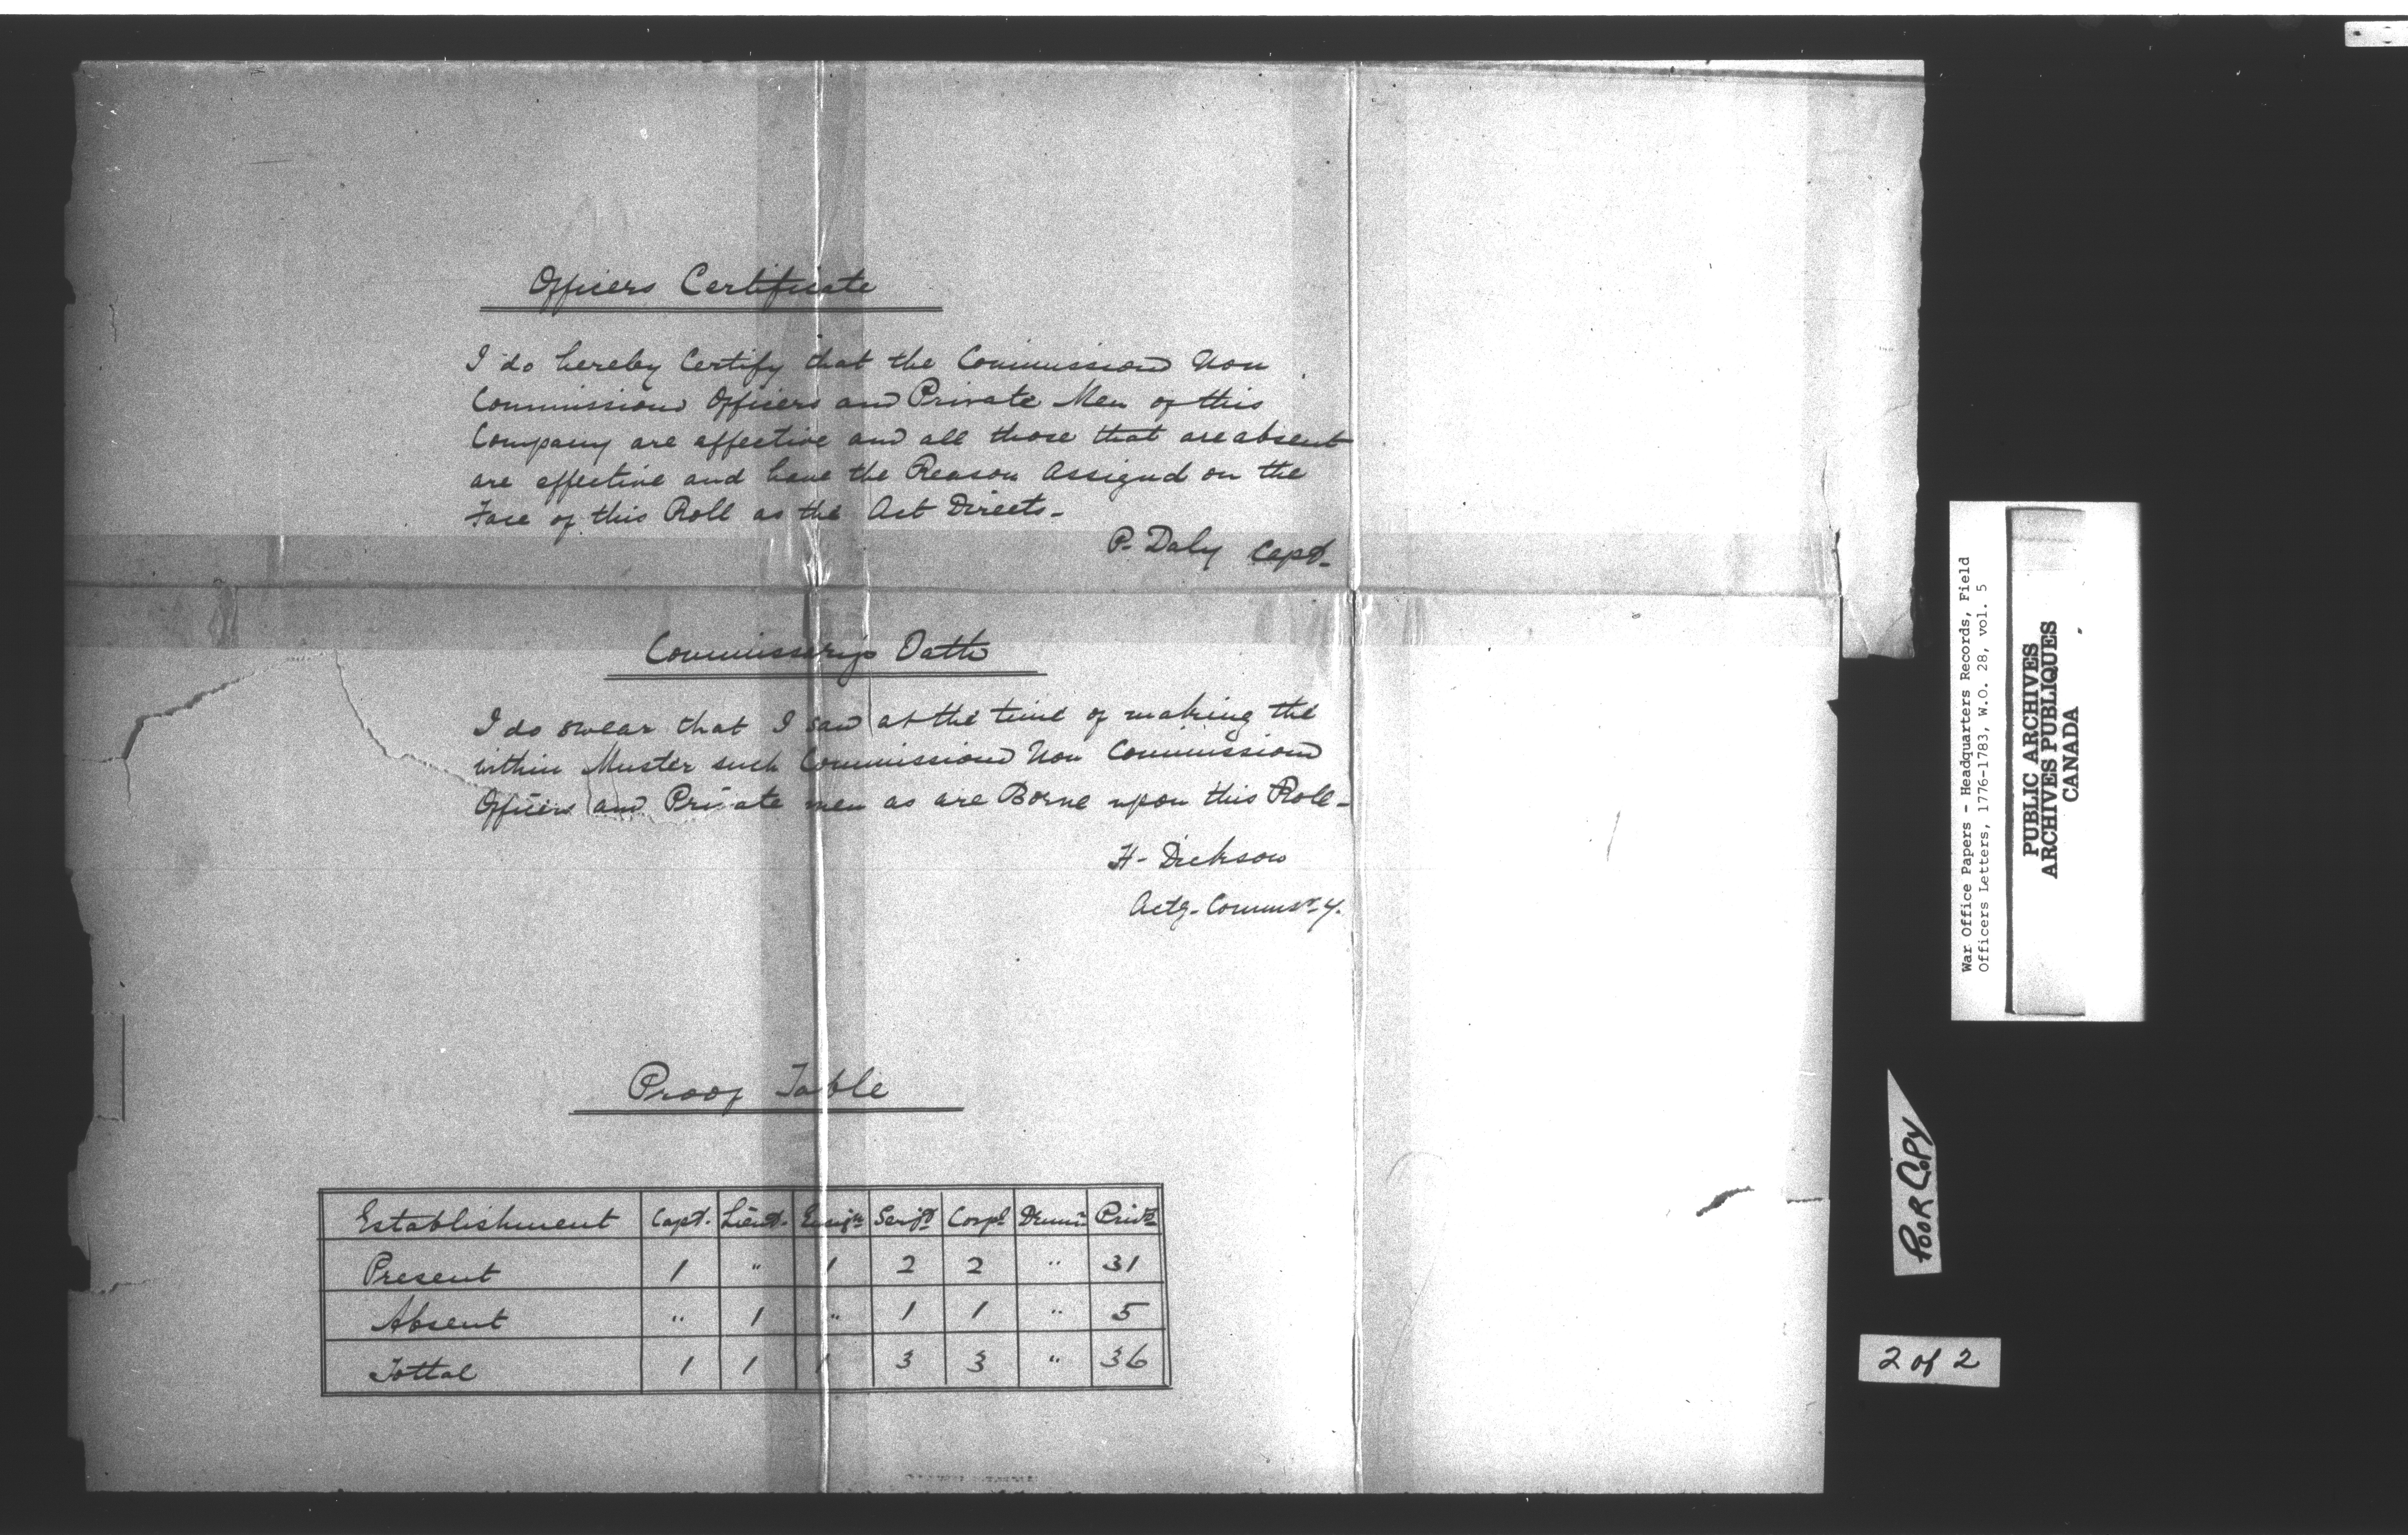 Officers Certificate
I do hereby Certify that the Commissiond Non
Commissiond Officers and Private Men of this
Company are affective and all those that are absent
are effective and have the Reason Assignd on the
Face of this Roll as the Act Directs-
P. Daly Capt.
Commissarys Oath
I do swear that I saw at the time of making the
within Muster such Commissiond Non Commissiond
Officers and Private men as are Borne upon this Roll-
H- Dickson
Actg. Commsr.y.
Proof Table
Establishment Capt. Lieut. Ensign Serjt Corpl Drumr Privts
Present 1 " 1 2 2 " 31
Absent " 1 " 1 1 " 5
Tottal 1 1 1 3 3 " 36
War Office Papers - Headquarters Records, Field
Officers Letters, 1776-1783, W.O. 28, vol. 5
PUBLIC ARCHIVES
ARCHIVES PUBLIQUES
CANADA
POOR COPY
2 of 2